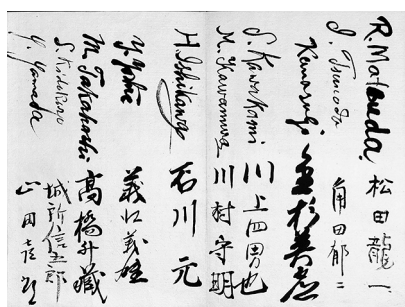 R. Matsuda.
松田龍一
S. Tsunoda
角田郁二
Kanasugi
金杉英
S. Kawakami
川上四男也
M. Kawamura
川村守明
H. Ishikawa
石川 元
Y. Yatsu
義江義雄
M. Takahashi
高橋升蔵
S. Kidokoro
城所信五郎
Y. Yamada
山田